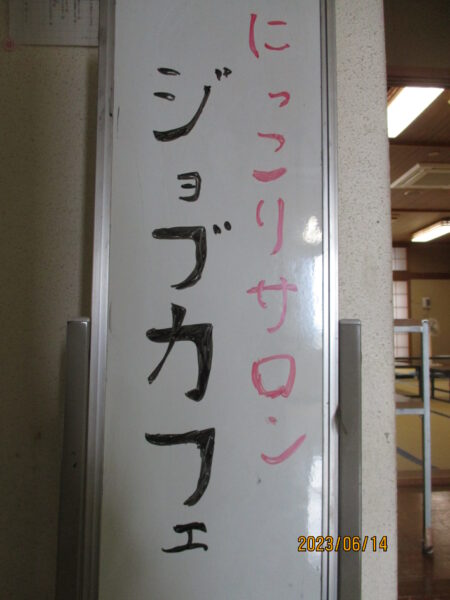 にっこりサロン
ジョブカフェ
2023/06/14